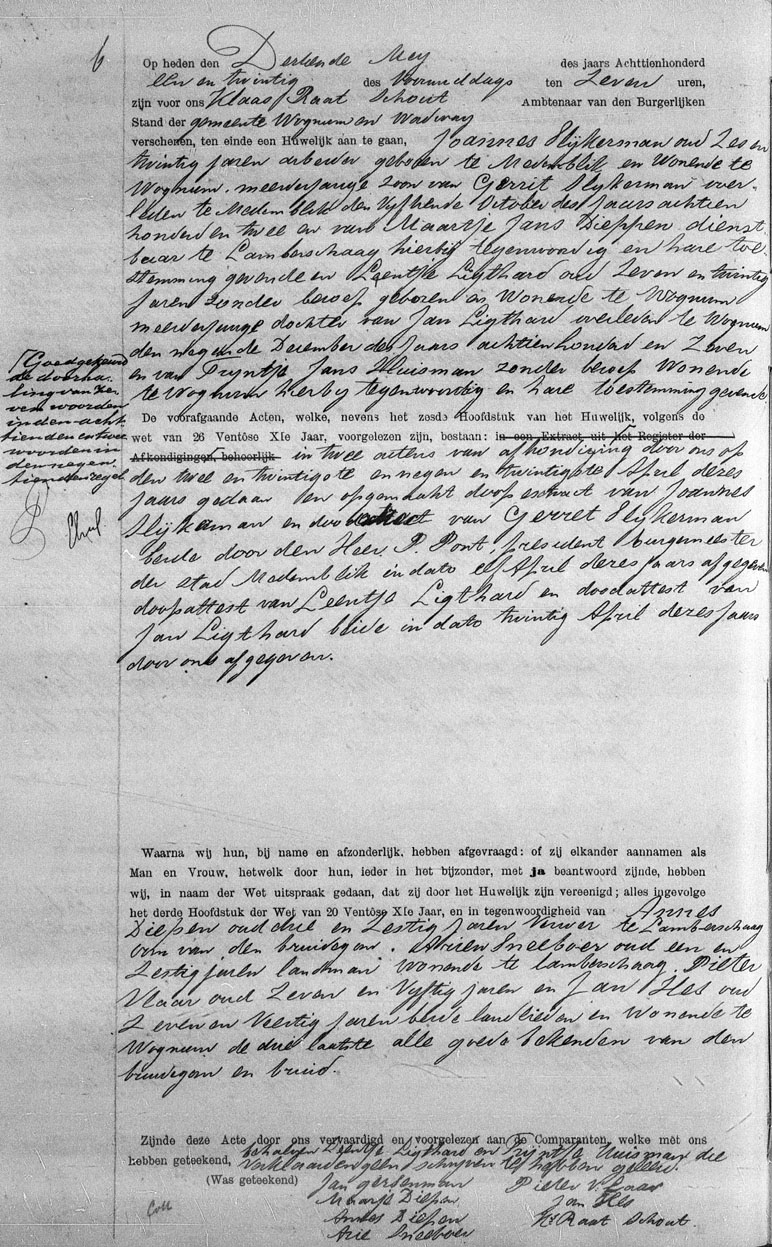 6
Op heden den Dertiende Mey des jaars Achttienhonderd
een en twintig des Voormiddags ten Zeven uren,
zijn voor ons Klaas Raat Schout Ambtenaar van den Burgerlijken
Stand der gemeente Wognum en Wadway
verschenen, ten einde een Huwelijk aan te gaan, Joannes Slijkerman oud Zes en
twintig jaren arbeider geboren te Medemblik en Wonende te
Wognum. meerderjarige zoon van Gerrit Slykerman over-
leden te Medemblik den Vyftiende October des jaars achtien
honderd en twee en van Maartje Jans Dieppen dienst
baar te Lamberschaag hierbij tegenwoordig en hare toe-
stemming gevende en Leentje Ligthard oud Zeven en twintig
jaren zonder beroep geboren en Wonende te Wognum
meerderjarige dochter van Jan Ligthard overleden te Wognum
den negende December des jaars achtienhonderd en Zeven
en van Tryntje Jans Huisman zonder beroep Wonende
te Wognum hierby tegenwoordig en hare toestemming gevende
Goedgekeurd
de doorha-
ling van
woorden
in den acht
tienden en twee
woorden in
den negen
tienden regel
De voorafgaande Acten, welke, nevens het zesde Hoofdstuk van het Huwelijk, volgens de
wet van 26 Ventôse XIe Jaar, voorgelezen zijn, bestaan: in een Extract uit het Register der
Afkondigingen, behoorlijk in twee acters van afkondiging door ons op
den twee en twintigste en negen en twintigste April dezes
jaars gedaan en opgemaakt doop extract van Joannes
Slijkeman en van Gerret Slykerman
beide door den Heer P. Pont, president burgemeester
der stad Medemblik in dato elf April dezes jaars afgegeven
doopattest van Leentje Ligthard en doodattest van
Jan Ligthard beide in dato twintig April dezes jaars
door ons afgegeven.
Waarna wij hun, bij name en afzonderlijk, hebben afgevraagd: of zij elkander aannamen als
Man en Vrouw, hetwelk door hun, ieder in het bijzonder, met ja beantwoord zijnde, hebben
wij, in naam der Wet uitspraak gedaan, dat zij door het Huwelijk zijn vereenigd; alles ingevolge
het derde Hoofdstuk der Wet van 20 Ventôse XIe Jaar, en in tegenwoordigheid van Annes
Diepen oud drie en Zestig jaren te Lamberschaag
oom van den bruidegom. Arien Sneeboer oud een en
Zestig jaren landman wonende te lamberschaag. Pieter
Vlaar oud Zeven en Vyftig jaren en Jan Hes oud
Zeven en Veertig jaren beide landlieden en Wonende te
Wognum de drie laatste alle goede bekenden van den
bruidegom en bruid.
Zijnde deze Acte door ons vervaardigd en voorgelezen aan de Comparanten, welke met ons
hebben geteekend, behalven Leentje Ligthard en Tryntje Huisman die
verklaarden geen schryven te hebben geleerd.
(Was geteekend) Jan gersenman Pieter v. Laar
Maartje Diepen Jan Hes
Annes Diepen Ks Raat Schout.
Arie Sneeboer
Coll